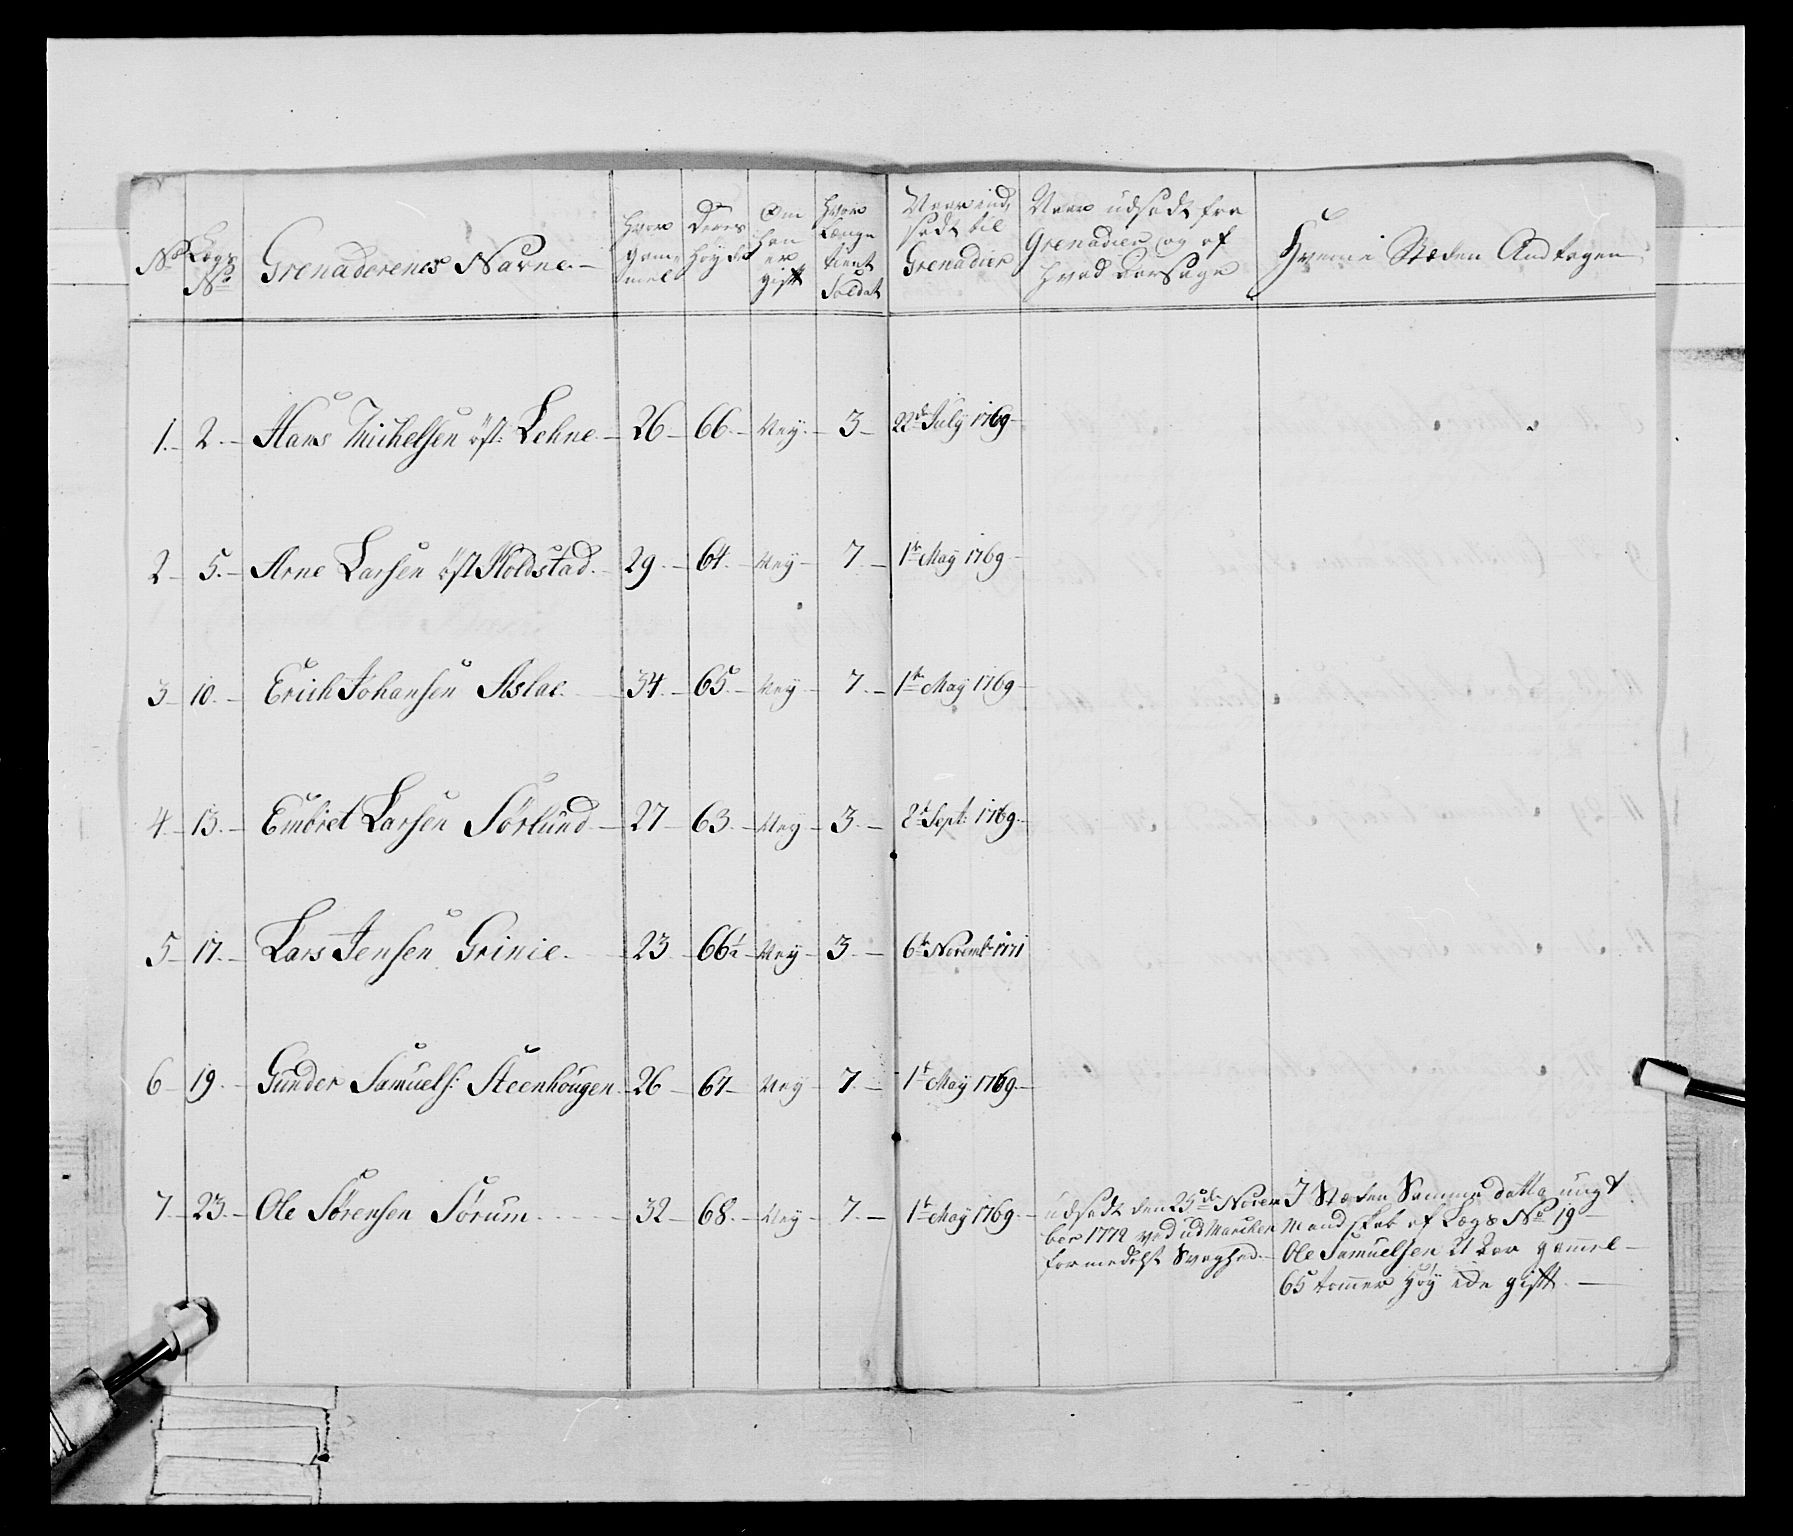 No Lægs No Grenaderenes Navne.- Hvor Gammel Deres Høyde Om han er gift Hvor Længe tient Soldat Naar indsadt til Grenadier Naar udsadt fra Grenadier og af hvad Aarsage Hvem i Stæden Andtagen
1.- 2.- Hans Michelsen öst: Lehne.- 26- 66.- Ney.- 3- 22de July 1769-
2- 5.- Arne Larsen öst Moldstad.- 29.- 64.- Ney- 7.- 1te May 1769-
3- 10.- Erich Johansen Aslae.- 34.- 65.- Ney.- 7.- 1te May 1769-
4- 13.- Embret Larsen Sörlund.- 27- 63.- Ney- 3.- 2t Sept: 1769.-
5- 17.- Lars Jensen Grinie.- 23- 66½- Ney- 3.- 6te Novemb: 1771
6- 19.- Gunder Samuels: Steenhougen.- 26- 67- Ney- 7.- 1t May 1769-
7.- 23.- Ole Sörensen Sörum.- 32- 68.- Ney- 7.- 1t May 1769.-
udsadt den 25de Novem
ber 1772 ved udMarchen
formedelst Svaghed.-
I Stæden Samme datto ungt
Mandskab af Lægs No 19-
Ole Samuelsen 21 Aar gammel-
65 tommer Høy ide gift.-